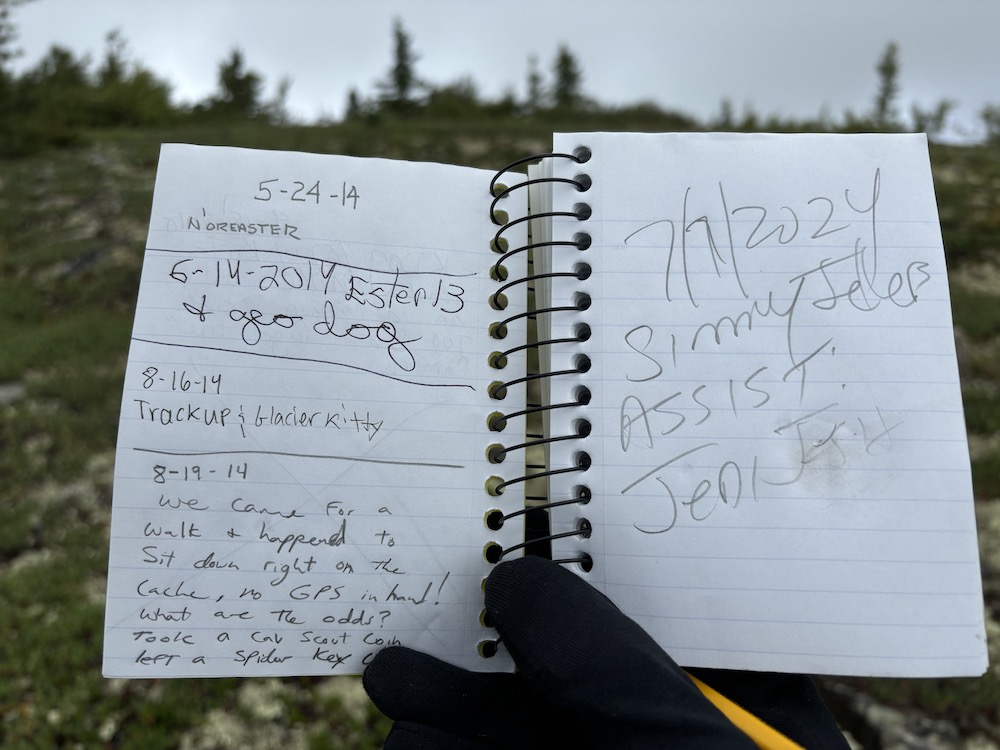 5-24-14
N'OREASTER
6-14-2014 Ester13
& geo dog
8-16-14
Trackup & Glacier Kitty
8-19-14
We came For a
walk & happened to
Sit down right on the
Cache, no GPS in hand!
What are the odds?
Took a Cav Scout Coin
left a Spider Key
7/7/2024
ASSIST.
JEDI